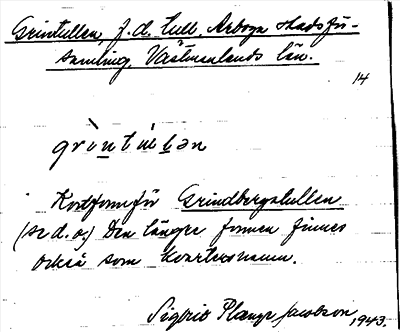 Grintullen, f.d. tull, Arboga stadsför-
samling, Västmanlands län.
14
grìntúlən
Kortform för Grindbergstullen
(se d.o.) Den längre formen finnes
också som kvartersnamn.
Sigrid Plange Jacobson, 1943.